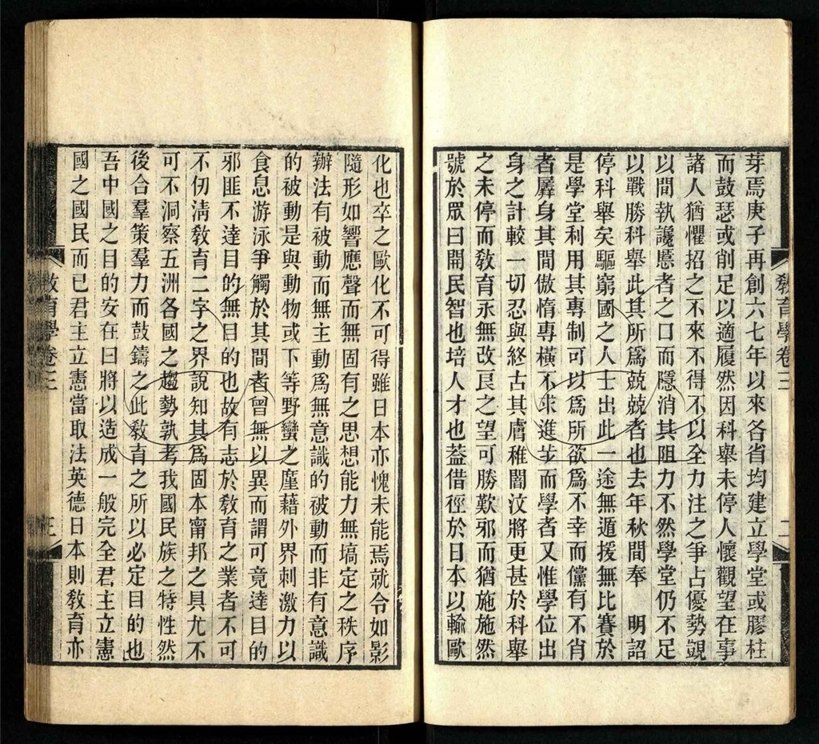 芽焉庚子再創六七年以來各省均建立學堂或膠柱
而鼓瑟或削足以適履然因科舉未停人懷觀望在事
諸人猶懼招之不來不得不以全力注之爭占優勢覬
以間執讒慝者之口而隱消其阻力不然學堂仍不足
以戰勝科舉此其所爲兢兢者也去年秋間奉　明詔
停科舉矣驅窮國之人士出此一途無遁援無比賽於
是學堂利用其專制可以爲所欲爲不幸而儻有不肖
者羼身其間傲惰專橫不求進步而學者又惟學位出
身之計較一切忍與終古其膚稚闇汶將更甚於科舉
之未停而敎育永無改良之望可勝歎邪而猶施施然
號於眾曰開民智也培人才也蓋借徑於日本以輸歐
敎育學卷三
二
化也卒之歐化不可得雖日本亦愧未能焉就令如影
隨形如響應聲而無固有之思想能力無搞定之秩序
辦法有被動而無主動爲無意識的被動而非有意識
的被動是與動物或下等野蠻之麈藉外界刺激力以
食息游泳爭觸於其間者曾無以異而謂可竟達目的
邪匪不達目的無目的也故有志於敎育之業者不可
不仞淸敎育二字之界說知其爲固本甯邦之具尤不
可不洞察五洲各國之趨勢孰考我國民族之特性然
後合羣策羣力而鼓鑄之此敎育之所以必定目的也
吾中國之目的安在曰將以造成一般完全君主立憲
國之國民而已君主立憲當取法英德日本則敎育亦
敎育學卷三
三